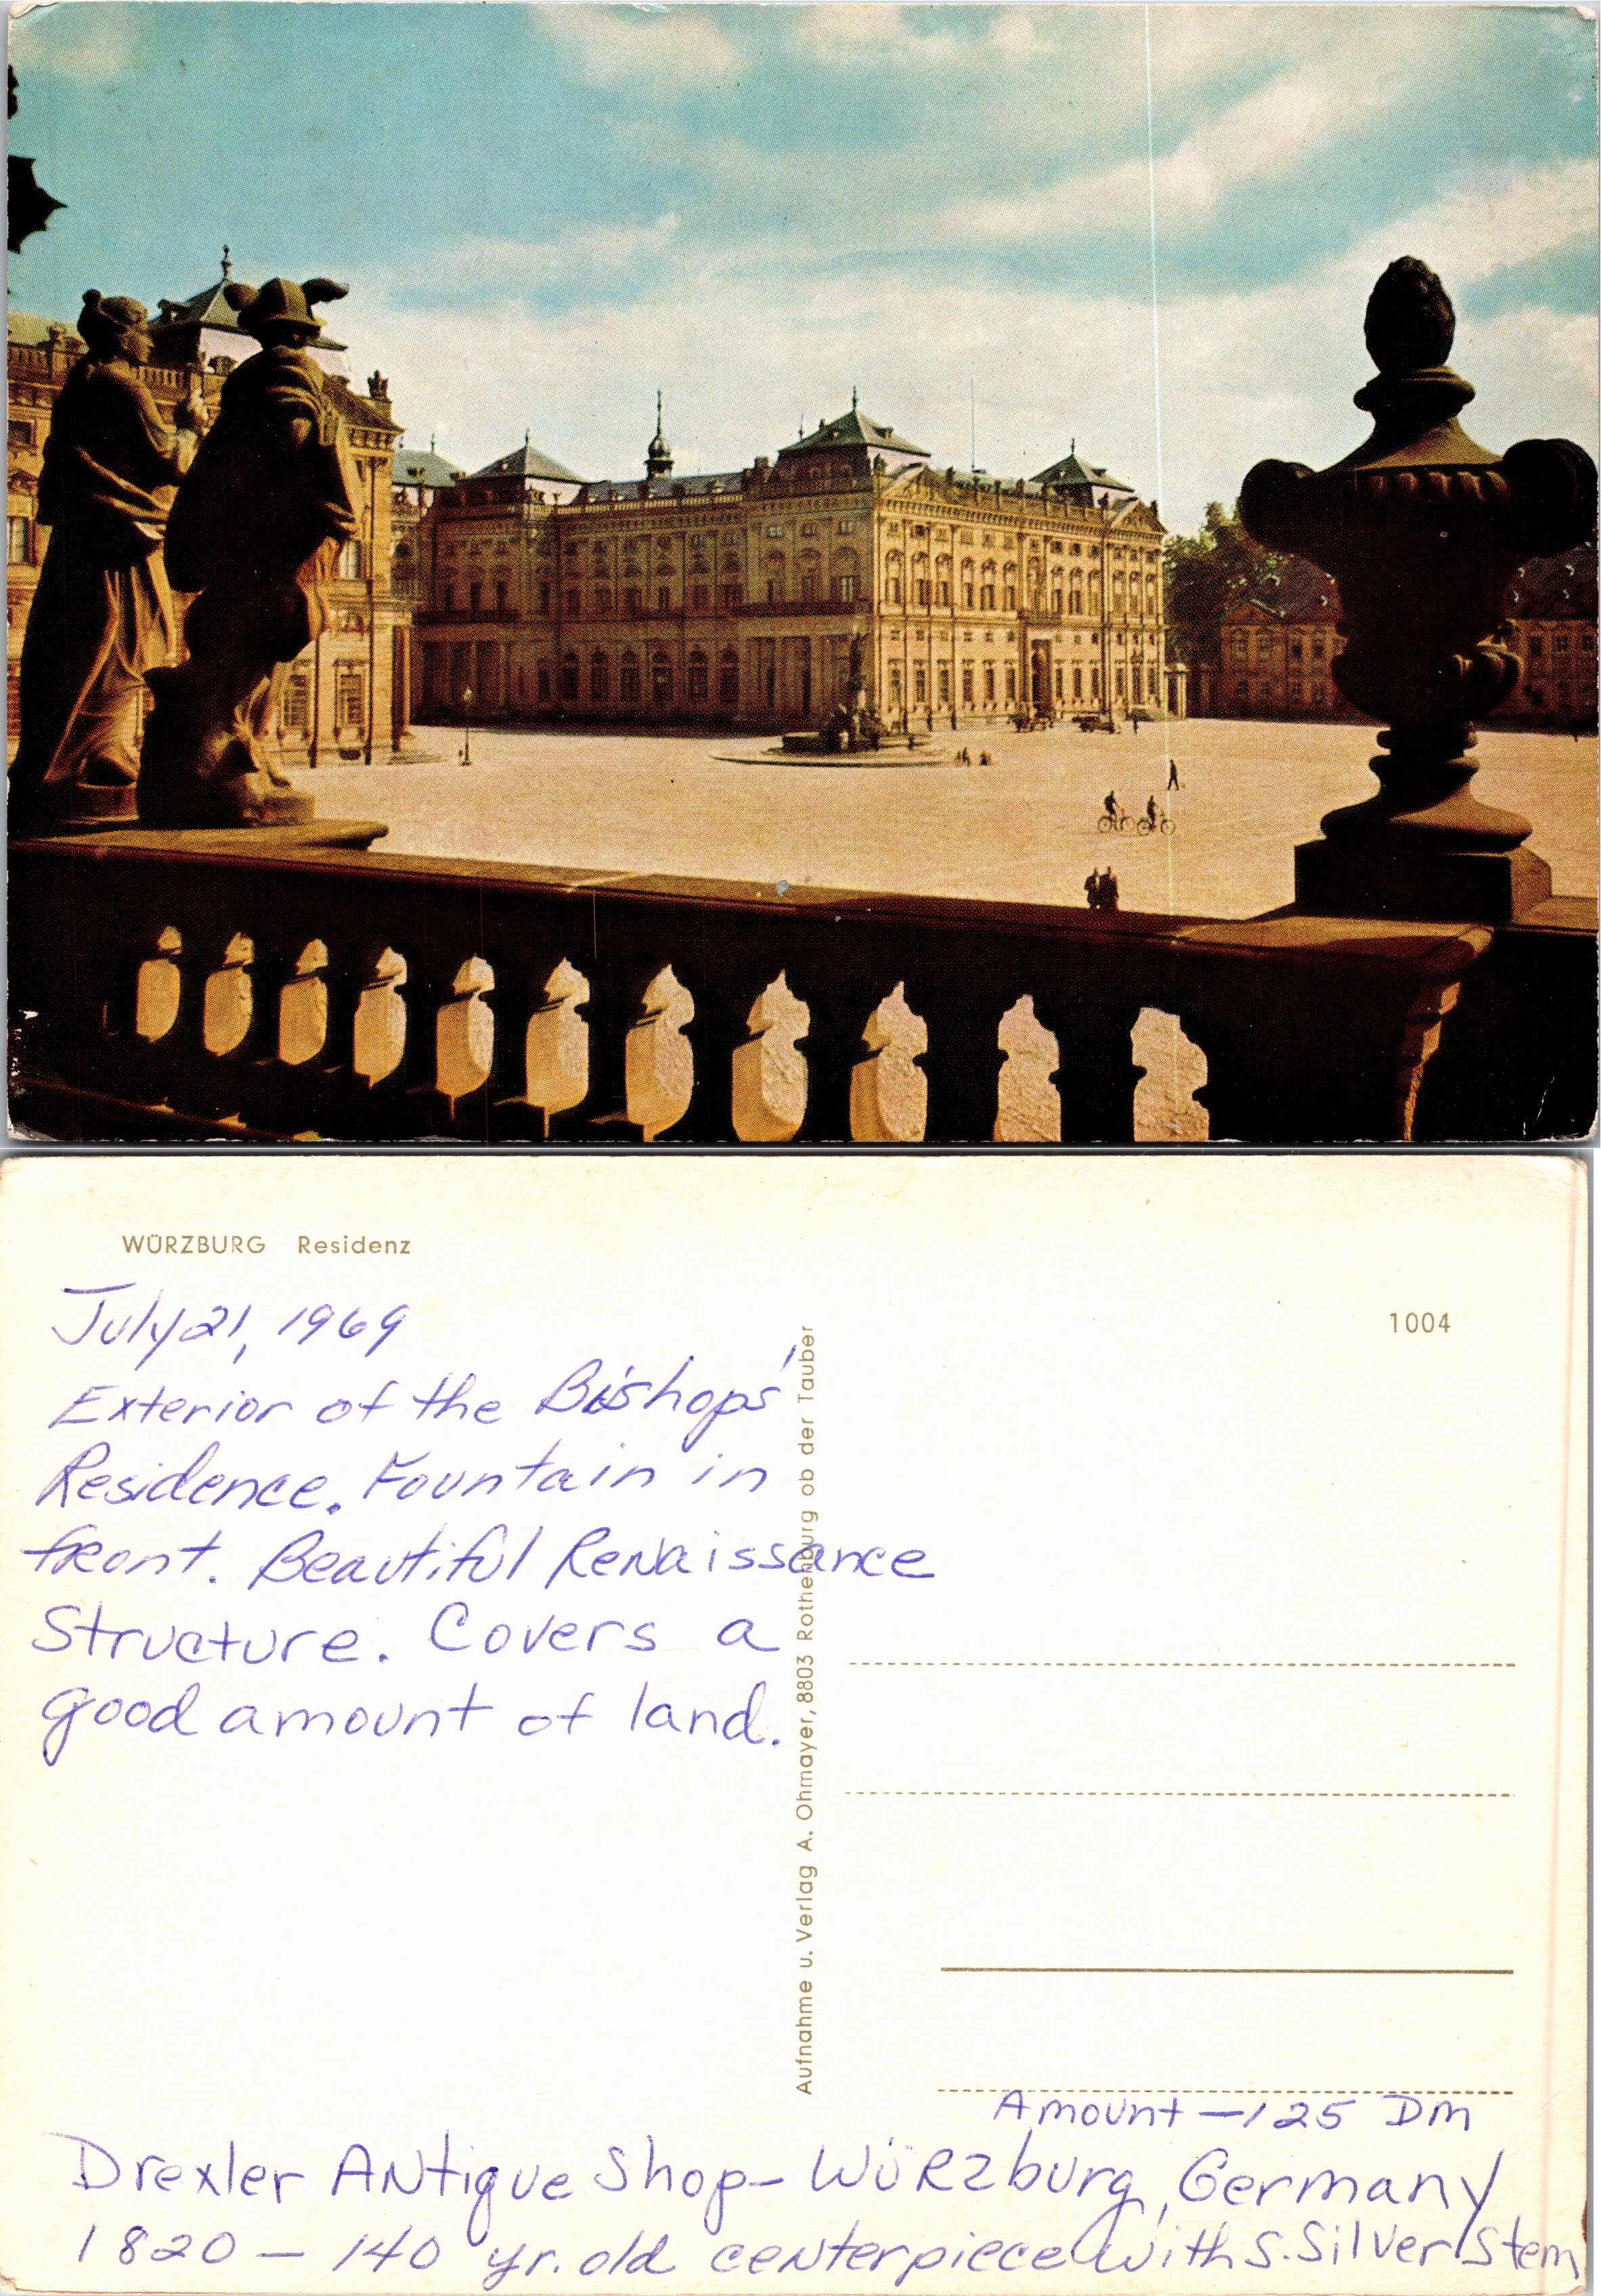 WÜRZBURG Residenz
July 21, 1969
Exterior of the Bishops'
Residence. Fountain in
front. Beautiful Renaissance
Structure. Covers a
good amount of land.
1004
Aufnahme u. Verlag A. Ohmayer, 8803 Rothenburg ob der Tauber
Amount — 125 DM
Drexler Antique Shop - Würzburg, Germany
1820 — 140 yr. old centerpiece with S. Silver Stem